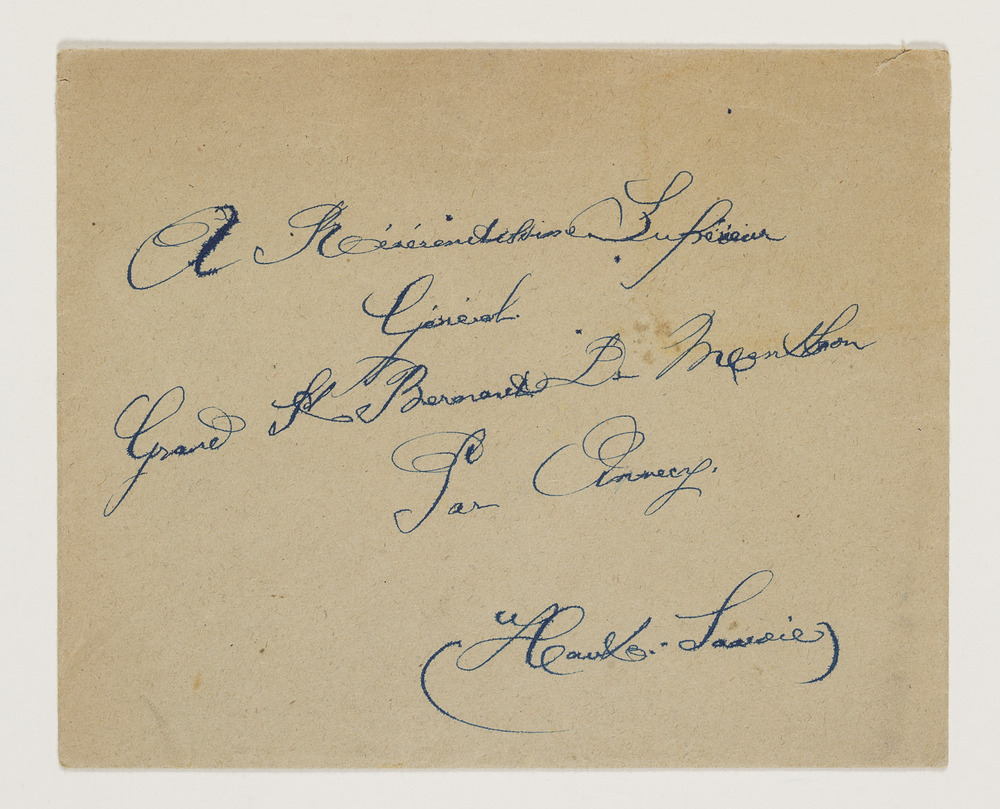 A Révérendissime Supérieur
Général.
Grand St Bernard De Menthon
Par Annecy.
(Haute-Savoie)